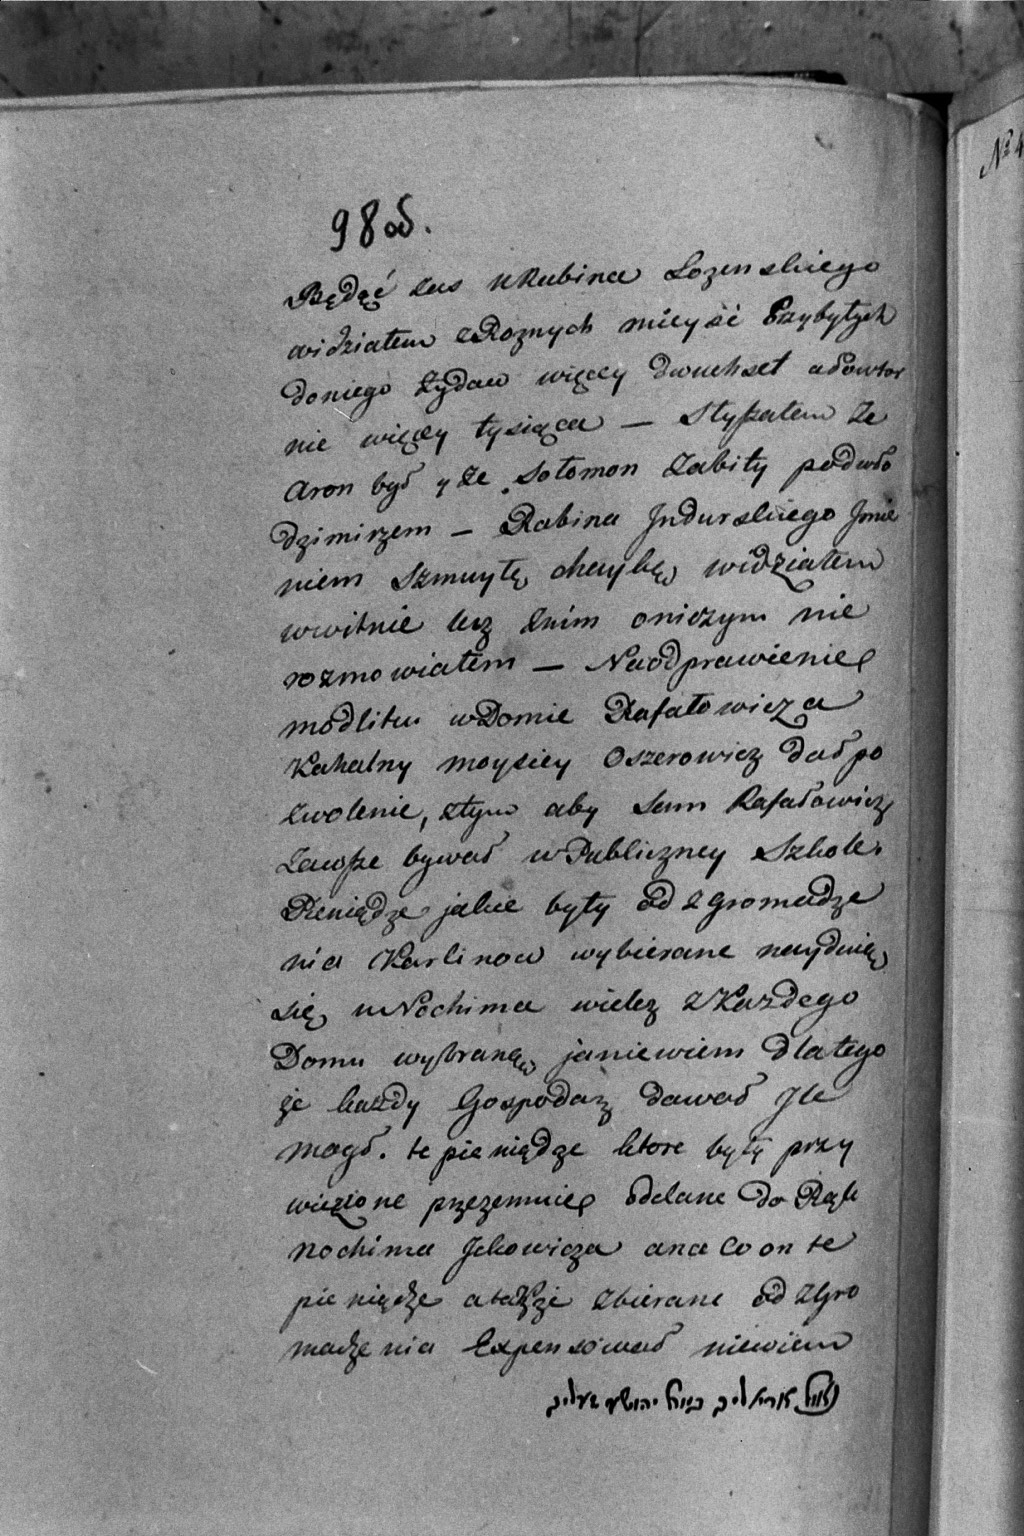 98 об.
№ 4
Będąć zas u Rabina Lozenskiego
widziałem z Roznych mieysć Przybyłych
doniego Żydow więcey dwuchset a
nie więcey tysiąca — Słyszałem że
Aron był y że Sołomon Zabiły podwło
dzimirzem — Rabina Indurskiego Jmie
niem Szmuyłę widziałem
wwilnie lecz znim oniczym nie
rozmowiałem — Naodprawienie
modlitw w Domie Rafałowicza
Kahalny Moysiey Oszerowicz dał po
zwolenie, ztym aby Sam Rafałowicz
Zawsze bywał w Publiczney Szkole.
Pieniądze jakie były od zgromadze
nia Karlinow wybierane
się u Nochima wielez z Każdego
Domu wybraną janiewiem dlatego
że każdy Gospodarz dawał Jle
mogł. te pieniądze ktore były przy
wiezione przezemnie oddane do Rąk
Nochima Jckowicza ana co on te
pieniądze a także zbierane od zgro
madzenia Expensował niewiem